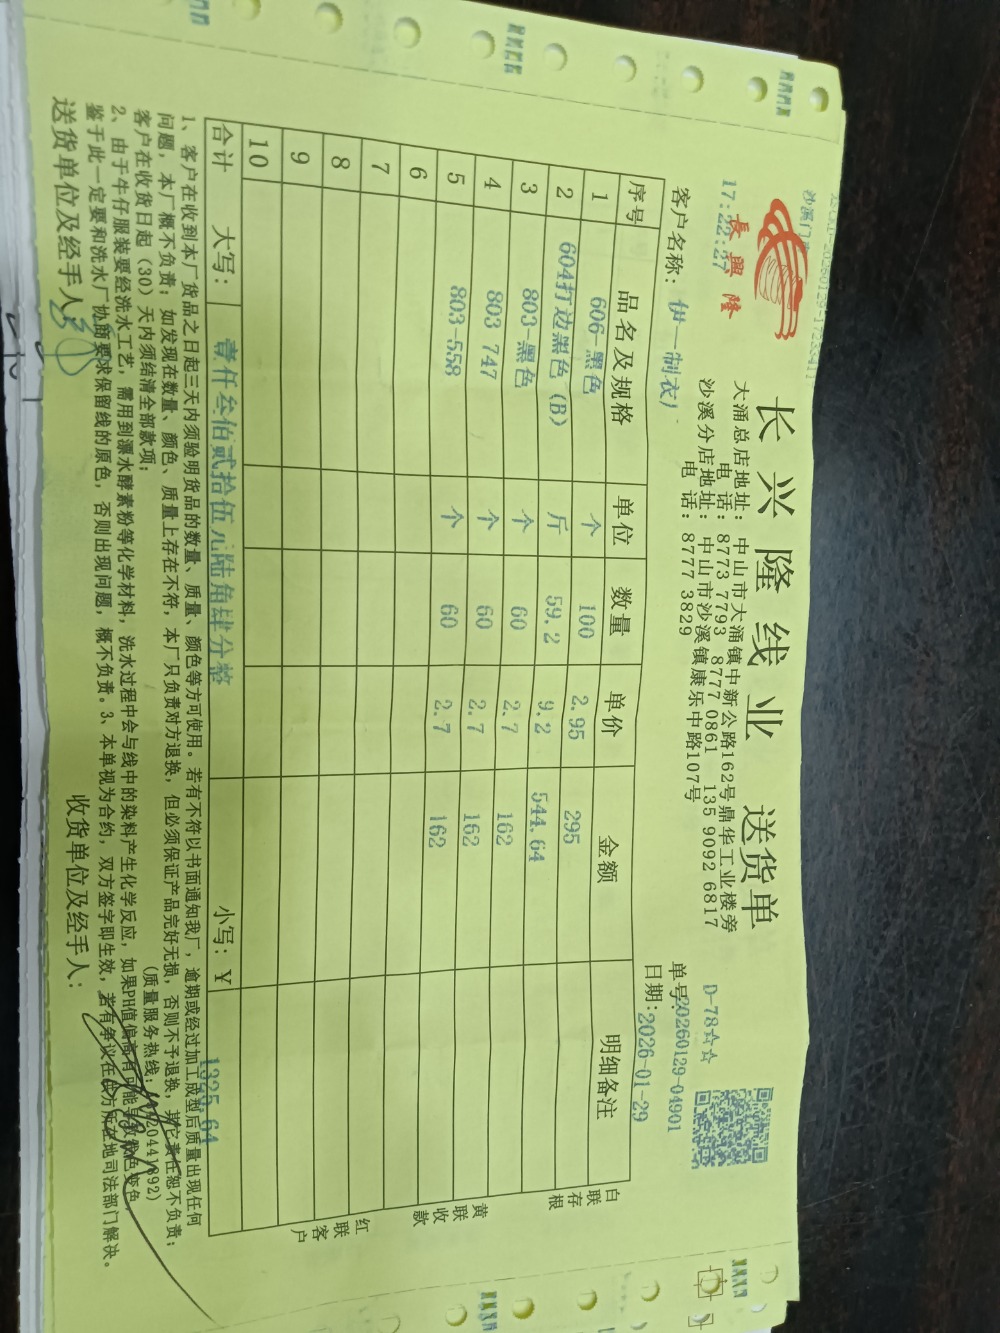 长兴隆线业 送货单
長興隆
17:22:27
大涌总店地址: 中山市大涌镇中新公路162号鼎华工业楼旁
电 话: 8773 7793 8777 0861 135 9092 6817
沙溪分店地址: 中山市沙溪镇康乐中路107号
电 话: 8777 3829
D-78☆☆
单号:20260129-04901
客户名称: 伊一制衣厂
日期: 2026-01-29
序号 品名及规格 单位 数量 单价 金额 明细备注
1 606-黑色 个 100 2.95 295
2 604打边黑色 (B) 斤 59.2 9.2 544.64
3 803-黑色 个 60 2.7 162
4 803 747 个 60 2.7 162
5 803-558 个 60 2.7 162
6
7
8
9
10
合计 大写: 壹仟叁佰贰拾伍元陆角肆分整 小写: ¥ 1325.64
白联存根
黄联收款
红联客户
1、客户在收到本厂货品之日起三天内须验明货品的数量、质量、颜色等方可使用。若有不符以书面通知我厂, 逾期或经过加工成型后质量出现任何
问题, 本厂概不负责; 如发现在数量、颜色、质量上存在不符, 本厂只负责对方退换, 但必须保证产品完好无损, 否则不予退换, 其它责任恕不负责;
客户在收货日起 (30) 天内须结清全部款项;
(质量服务热线:
2、由于牛仔服装要经洗水工艺, 需用到漂水酵素粉等化学材料, 洗水过程中会与线中的染料产生化学反应, 如果PH值偏高有可能导致褪色变色,
鉴于此一定要和洗水厂协商要求保留线的原色, 否则出现问题, 概不负责。3、本单视为合约, 双方签字即生效, 若有争议在我方所在地司法部门解决。
送货单位及经手人:
收货单位及经手人: